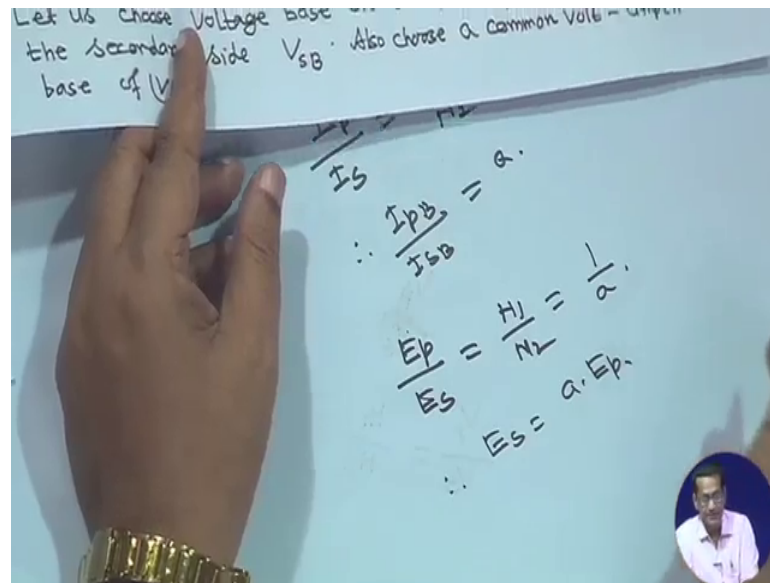 Let us choose Voltage base on
the secondary side V_SB. Also choose a common Volt-
base of (V
I_P / I_S =
∴ I_PB / I_SB = a.
E_P / E_S = N1 / N2 = 1 / a.
∴ E_S = a. E_P.